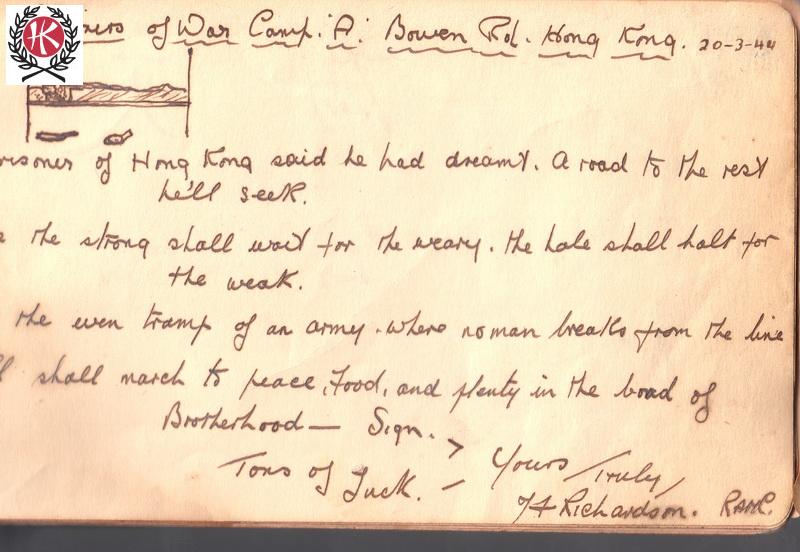 HK
ners of War Camp. 'A'. Bowen Rd. Hong Kong. 20-3-44
risoner of Hong Kong said he had dreamt. A road to the rest
he'll seek.
the strong shall wait for the weary. the hale shall halt for
the weak.
the even tramp of an army. where no man breaks from the line
shall march to peace, Food, and plenty in the boad of
Brotherhood — Sign.
Yours Truly
Tons of Luck. —
Richardson. RAMC.